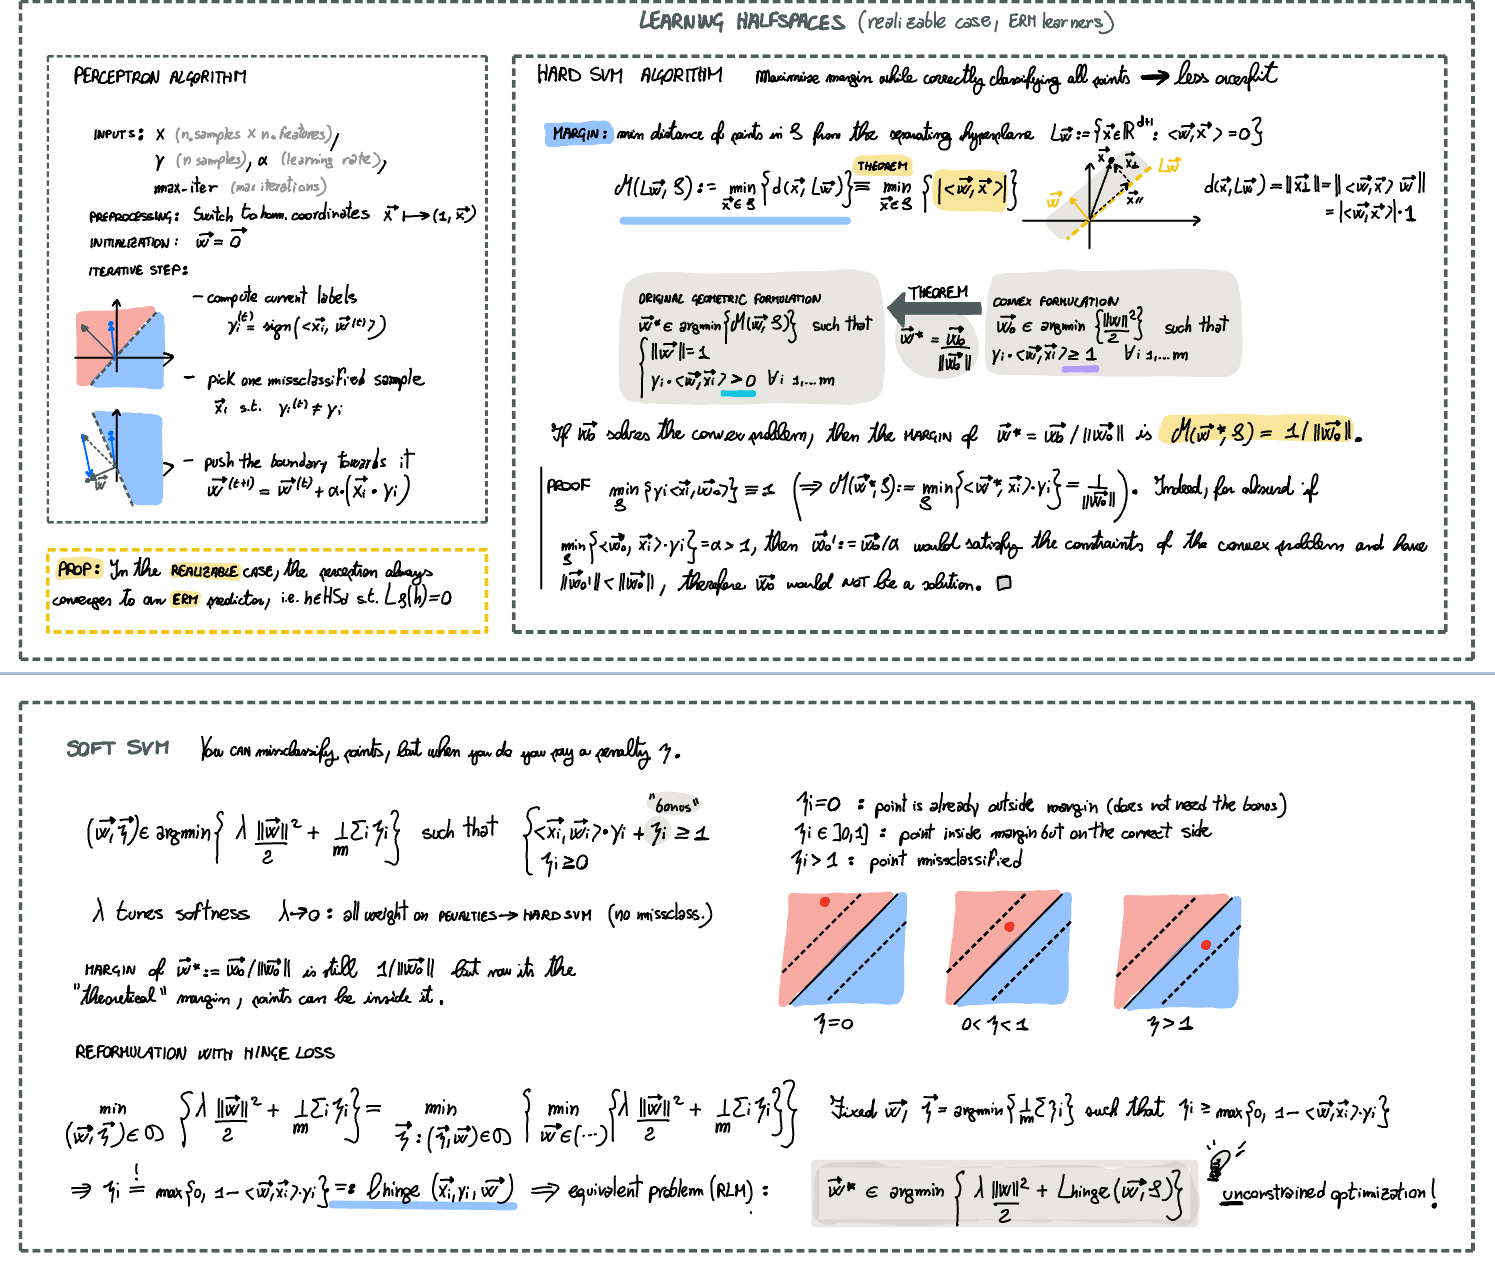 LEARNING HALFSPACES (realizable case, ERM learners)
PERCEPTRON ALGORITHM
INPUTS: X (n. samples × n. features),
Y (n samples), α (learning rate),
max-iter (max iterations)
PREPROCESSING: Switch to hom. coordinates x⃗ ↦ (1, x⃗)
INITIALIZATION: w⃗ = 0⃗
ITERATIVE STEP:
- compute current labels
yᵢ⁽ᵗ⁾ = sign(<x⃗ᵢ, w⃗⁽ᵗ⁾>)
- pick one missclassified sample
x⃗ᵢ s.t. yᵢ⁽ᵗ⁾ ≠ yᵢ
- push the boundary towards it
w⃗⁽ᵗ⁺¹⁾ = w⃗⁽ᵗ⁾ + α·(x⃗ᵢ · yᵢ)
w⃗
PROP: In the REALIZABLE CASE, the perceptron always
converges to an ERM predictor, i.e. h∈HSd s.t. L_S(h)=0
HARD SVM ALGORITHM Maximise margin while correctly classifying all points → less overfit
MARGIN: min distance of points in S from the separating hyperplane L_w⃗ := {x⃗∈ℝᵈ⁺¹: <w⃗,x⃗> = 0}
THEOREM
M(L_w⃗, S) := min_{x⃗∈S} {d(x⃗, L_w⃗)} ≡ min_{x⃗∈S} {|<w⃗, x⃗>|}
x⃗ x⃗⊥ L_w⃗
w⃗ x⃗//
d(x⃗, L_w⃗) = ||x⃗⊥|| = ||<w⃗,x⃗> w⃗||
= |<w⃗,x⃗>| · 1
ORIGINAL GEOMETRIC FORMULATION
w⃗* ∈ argmin{M(w⃗, S)} such that
||w⃗|| = 1
yᵢ·<w⃗,x⃗ᵢ> > 0 ∀i 1,...m
THEOREM
w⃗* = w⃗₀ / ||w⃗₀||
CONVEX FORMULATION
w⃗₀ ∈ argmin {||w||² / 2} such that
yᵢ·<w⃗,x⃗ᵢ> ≥ 1 ∀i 1,...m
If w⃗₀ solves the convex problem, then the MARGIN of w⃗* = w⃗₀/||w⃗₀|| is M(w⃗*, S) = 1/||w⃗₀||.
PROOF min_S {yᵢ<x⃗ᵢ,w⃗₀>} ≡ 1 (⇒ M(w⃗*,S) := min_S {<w⃗*, x⃗ᵢ>·yᵢ} = 1/||w⃗₀||). Indeed, for absurd if
min_S {<w⃗₀, x⃗ᵢ>·yᵢ} = α > 1, then w⃗₀' := w⃗₀/α would satisfy the constraints of the convex problem and have
||w⃗₀'|| < ||w⃗₀||, therefore w⃗₀ would NOT be a solution. □
SOFT SVM You CAN missclassify points, but when you do you pay a penalty ξ.
"bonus"
(w⃗, ξ⃗) ∈ argmin{λ ||w⃗||²/2 + 1/m Σᵢ ξᵢ} such that { <x⃗ᵢ, w⃗ᵢ>·yᵢ + ξᵢ ≥ 1
ξᵢ ≥ 0
ξᵢ=0 : point is already outside margin (does not need the bonus)
ξᵢ ∈ ]0,1] : point inside margin but on the correct side
ξᵢ > 1 : point missclassified
λ tunes softness λ→0 : all weight on PENALTIES → HARD SVM (no missclass.)
MARGIN of w⃗* := w⃗₀/||w⃗₀|| is still 1/||w⃗₀|| but now its the
"theoretical" margin, points can be inside it.
ξ=0
0<ξ<1
ξ>1
REFORMULATION WITH HINGE LOSS
min_{(w⃗,ξ⃗)∈D} {λ ||w⃗||²/2 + 1/m Σᵢ ξᵢ} = min_{ξ⃗:(ξ⃗,w⃗)∈D} { min_{w⃗∈(...)} {λ ||w⃗||²/2 + 1/m Σᵢ ξᵢ}}
Fixed w⃗, ξ⃗ = argmin{1/m Σ ξᵢ} such that ξᵢ ≥ max{0, 1-<w⃗,x⃗ᵢ>·yᵢ}
⇒ ξᵢ =! max{0, 1-<w⃗,x⃗ᵢ>·yᵢ} =: ℓhinge (x⃗ᵢ,yᵢ,w⃗) ⇒ equivalent problem (RLM) :
w⃗* ∈ argmin {λ ||w||²/2 + Lhinge(w⃗,S)}
unconstrained optimization!